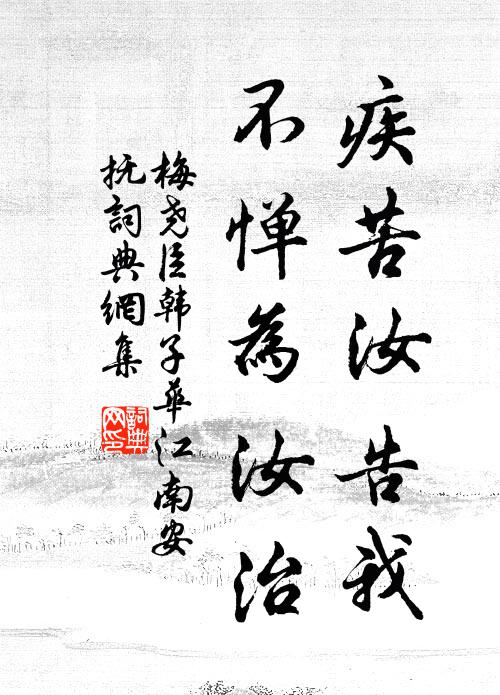 疾苦汝告我
不惮為汝治
梅尧臣韩子華江南安
抚詞典網集
詞典
网印